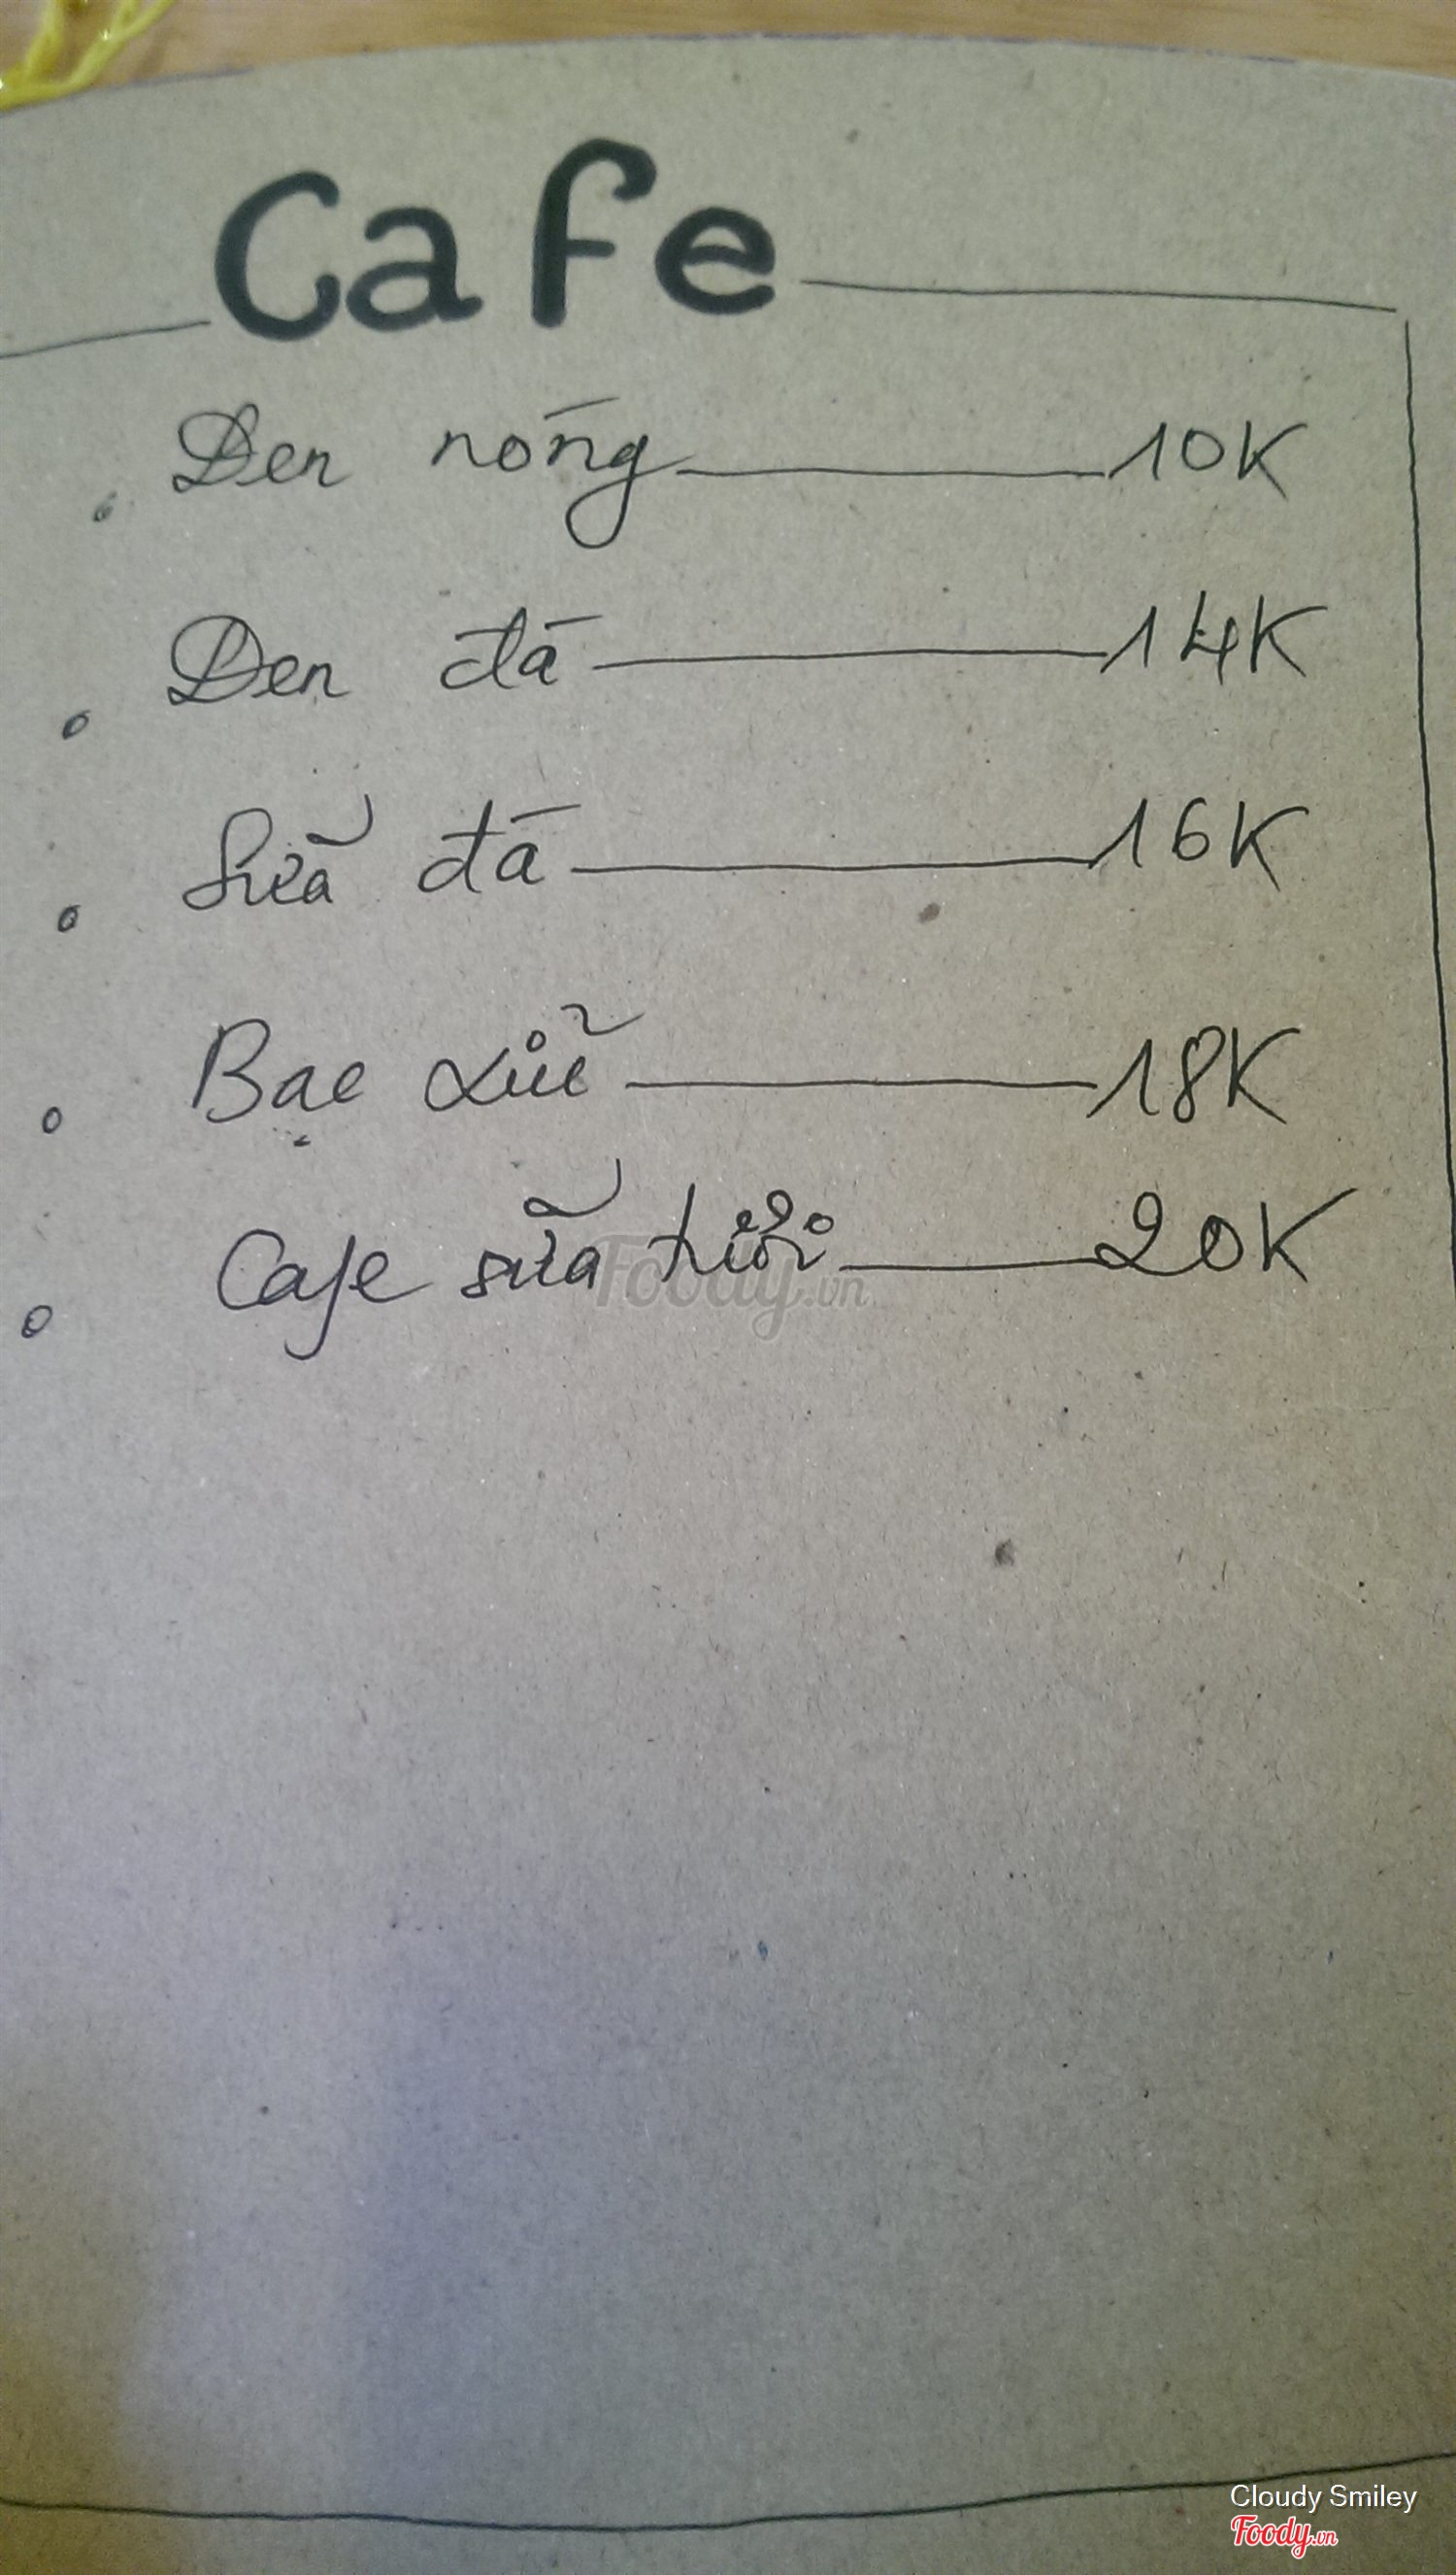 Cafe
Đen nóng 10K
Đen đá 14K
Sữa đá 16K
Bạc xỉu 18K
Cafe sữa tươi 20K
Foody.vn
Cloudy Smiley
Foody.vn